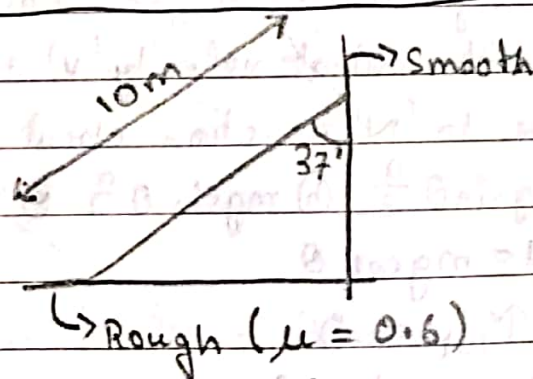 10m
→ Smooth
37°
↳ Rough (μ = 0.6)